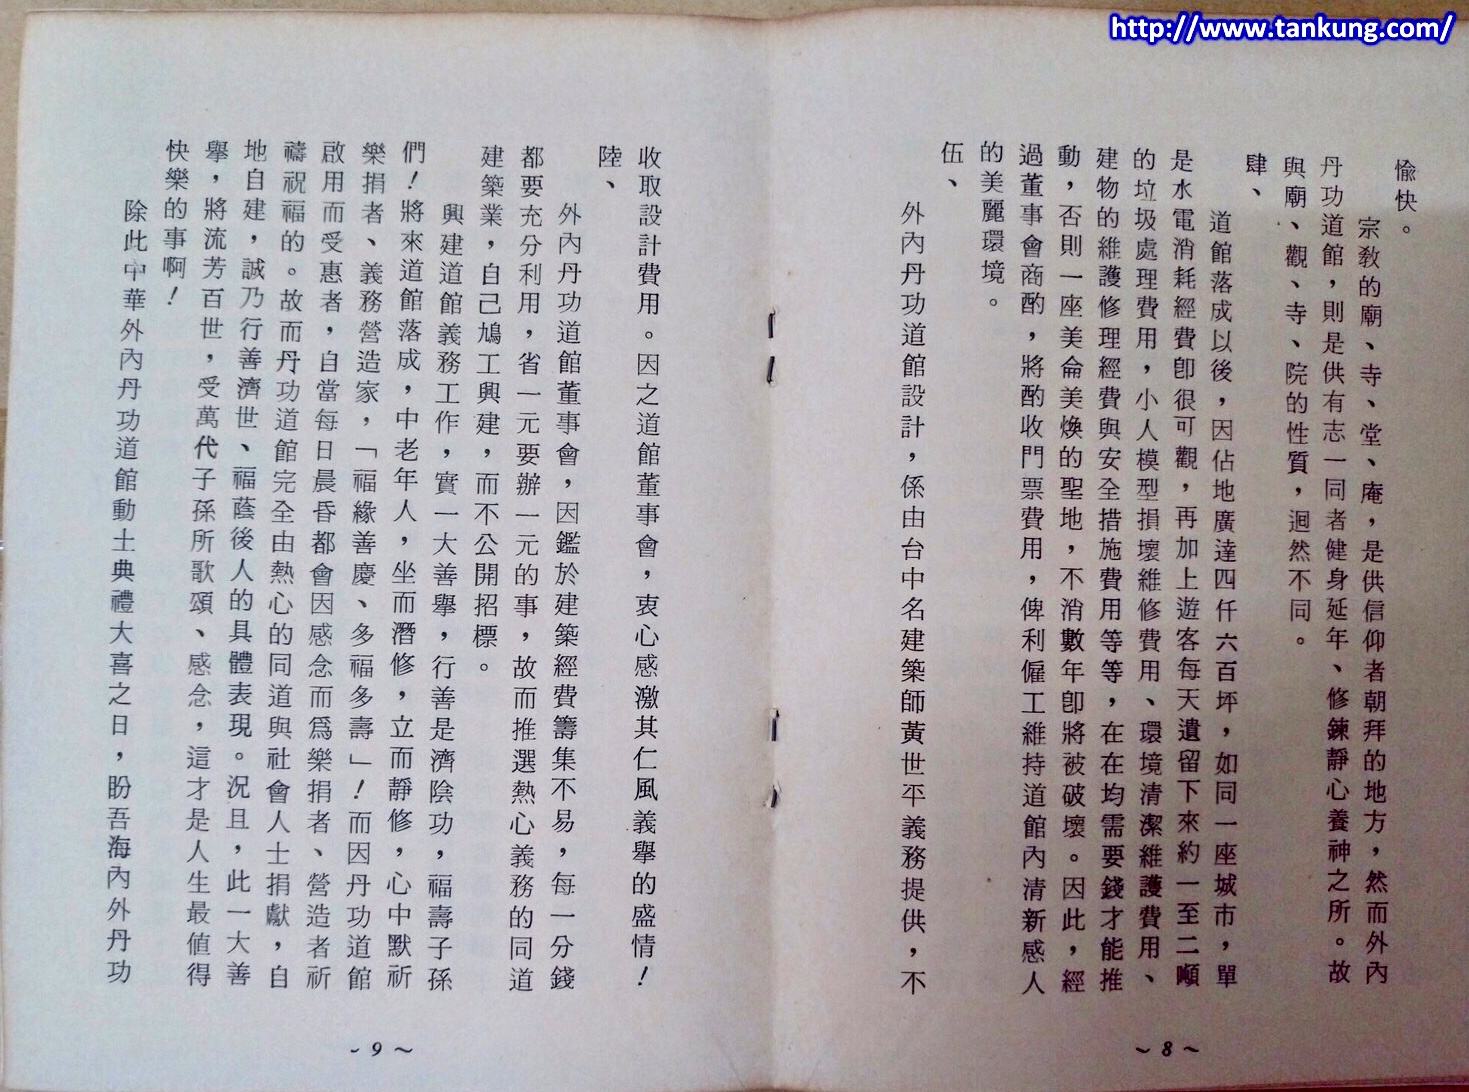 http://www.tankung.com/
愉快。
宗教的廟、寺、堂、庵，是供信仰者朝拜的地方，然而外內
丹功道館，則是供有志一同者健身延年、修鍊靜心養神之所。故
與廟、觀、寺、院的性質，迥然不同。
肆、
道館落成以後，因佔地廣達四仟六百坪，如同一座城市，單
是水電消耗經費卽很可觀，再加上遊客每天遺留下來約一至二噸
的垃圾處理費用，小人模型損壞維修費用、環境清潔維護費用、
建物的維護修理經費與安全措施費用等等，在在均需要錢才能推
動，否則一座美侖美煥的聖地，不消數年卽將被破壞。因此，經
過董事會商酌，將酌收門票費用，俾利僱工維持道館內清新感人
的美麗環境。
伍、
外內丹功道館設計，係由台中名建築師黃世平義務提供，不
~8~
收取設計費用。因之道館董事會，衷心感激其仁風義舉的盛情！
陸、
外內丹功道館董事會，因鑑於建築經費籌集不易，每一分錢
都要充分利用，省一元要辦一元的事，故而推選熱心義務的同道
建築業，自己鳩工興建，而不公開招標。
興建道館義務工作，實一大善舉，行善是濟陰功，福壽子孫
們！將來道館落成，中老年人，坐而潛修，立而靜修，心中默祈
樂捐者、義務營造家，「福緣善慶、多福多壽」！而因丹功道館
啟用而受惠者，自當每日晨昏都會因感念而爲樂捐者、營造者祈
禱祝福的。故而丹功道館完全由熱心的同道與社會人士捐獻，自
地自建，誠乃行善濟世、福蔭後人的具體表現。況且，此一大善
舉，將流芳百世，受萬代子孫所歌頌、感念，這才是人生最值得
快樂的事啊！
除此中華外內丹功道館動土典禮大喜之日，盼吾海內外丹功
~9~